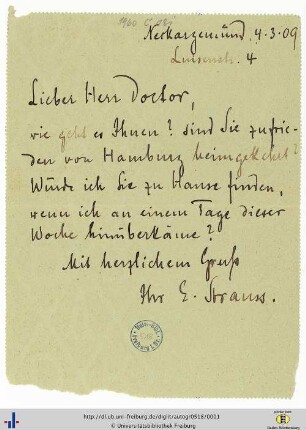 Neckargemünd, 4.3.09
Luisenstr. 4
Lieber Herr Doctor,
wie geht es Ihnen? sind Sie zufrie-
den von Hamburg heimgekehrt?
Würde ich Sie zu Hause finden,
wenn ich an einem Tage dieser
Woche hinüberkäme?
Mit herzlichem Gruß
Ihr E. Strauss.
http://dl.ub.uni-freiburg.de/diglit/autogr0918/0001
© Universitätsbibliothek Freiburg